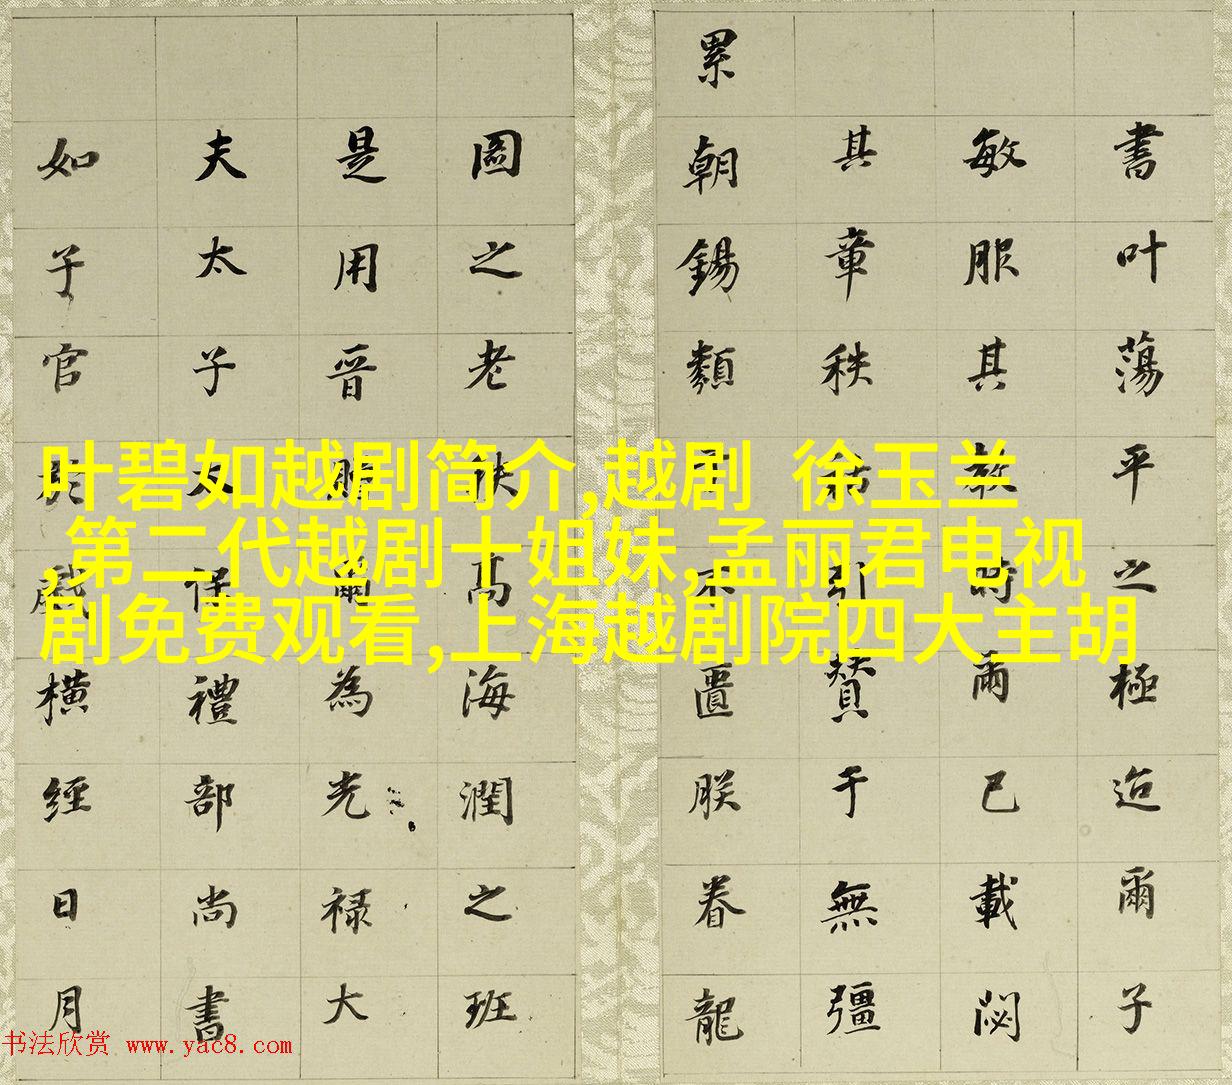 書叶蕩平之極迨爾子
敏服其教爾已載閟
其章秩引贊于無疆
累朝錫類不匱朕眷龍
圖之老秩高海潤之班
是用晉爾為光禄大
夫太子太保禮部尚書
如子官於戲橫經日月
叶碧如越剧简介,越剧 徐玉兰
,第二代越剧十姐妹,孟丽君电视
剧免费观看,上海越剧院四大主胡
书法欣赏 www.yac8.com